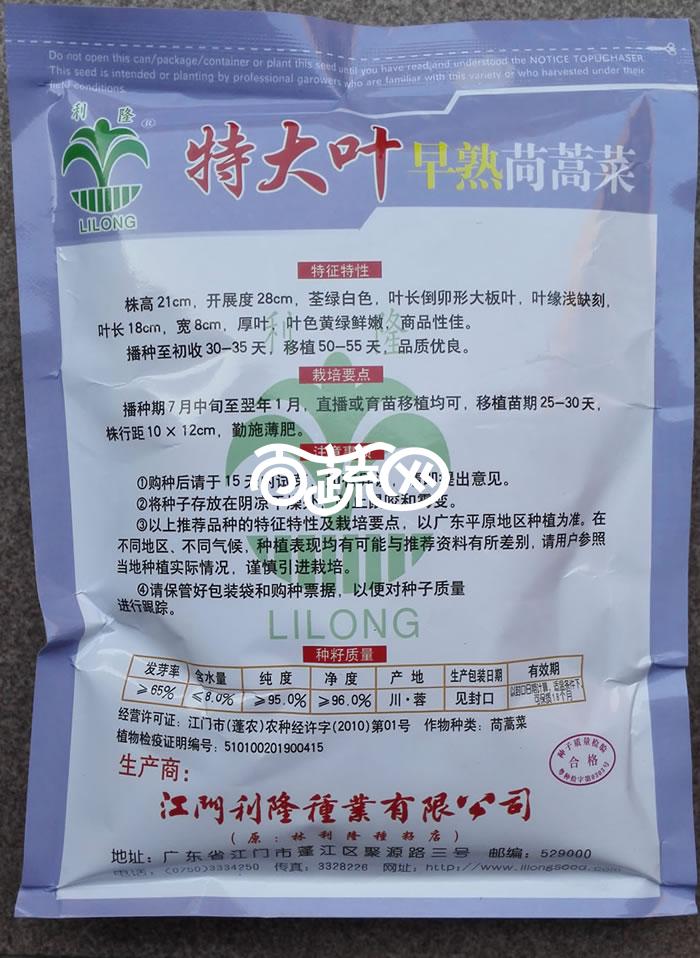 Do not open this can/package/container or plant this seed until you have read and understood the NOTICE TOPUCHASER
This seed is intended or planting by professional garowers who are familiar with this variety or who harvested under their
field conditions.
利隆®
LILONG
特大叶早熟茼蒿菜
特征特性
株高21cm，开展度28cm，茎绿白色，叶长倒卵形大板叶，叶缘浅缺刻，
叶长18cm，宽8cm，厚叶，叶色黄绿鲜嫩，商品性佳。
播种至初收30-35天，移植50-55天，品质优良。
利隆
栽培要点
播种期7月中旬至翌年1月，直播或育苗移植均可，移植苗期25-30天，
株行距10×12cm，勤施薄肥。
注意事项
百蔬网
①购种后请于15天内试芽，提出意见。
②将种子存放在阴凉干燥和霉变。
③以上推荐品种的特征特性及栽培要点，以广东平原地区种植为准。在
不同地区、不同气候，种植表现均有可能与推荐资料有所差别，请用户参照
当地种植实际情况，谨慎引进栽培。
④请保管好包装袋和购种票据，以便对种子质量
进行跟踪。
LILONG
种籽质量
发芽率 含水量 纯度 净度 产地 生产包装日期 有效期
≥65% ≤8.0% ≥95.0% ≥96.0% 川·蓉 见封口 以封口日期计算，适温条件下，可保质18个月
经营许可证：江门市(蓬农)农种经许字(2010)第01号 作物种类：茼蒿菜
植物检疫证明编号：510100201900415
种子质量检验
合格
生产商：
江門利隆種業有限公司
(原：林利隆種籽店)
地址：广东省江门市蓬江区聚源路三号 邮编：529000
电话：(0750)3334250 传真：3328226 网址：http://www.lilongseed.com